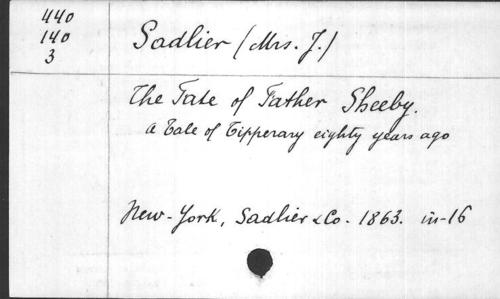 440
140
3
Sadlier (Mrs. J.)
The Fate of Father Sheeby.
a Tale of Tipperary eighty years ago
New-York, Sadlier & Co. 1863. in-16